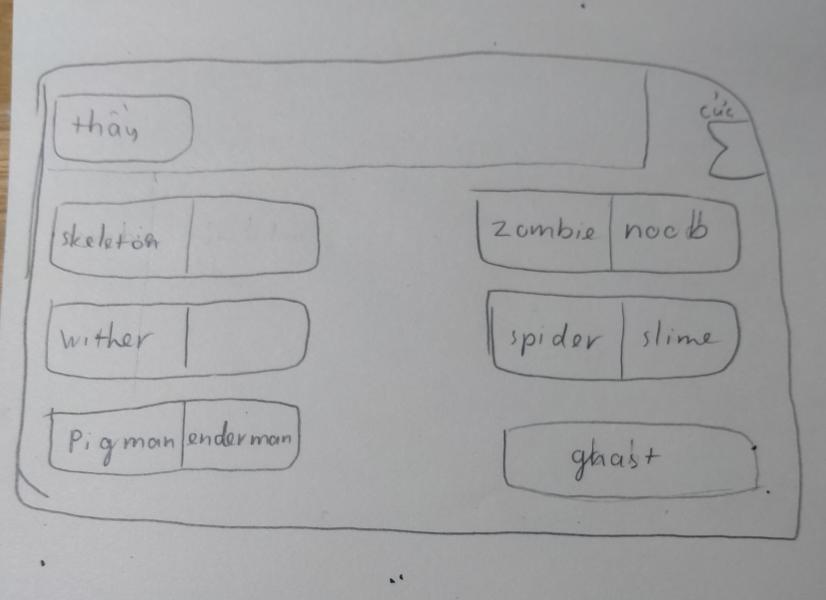 thầy
cửa
skeleton
zombie noob
wither
spider slime
pigman enderman
ghast